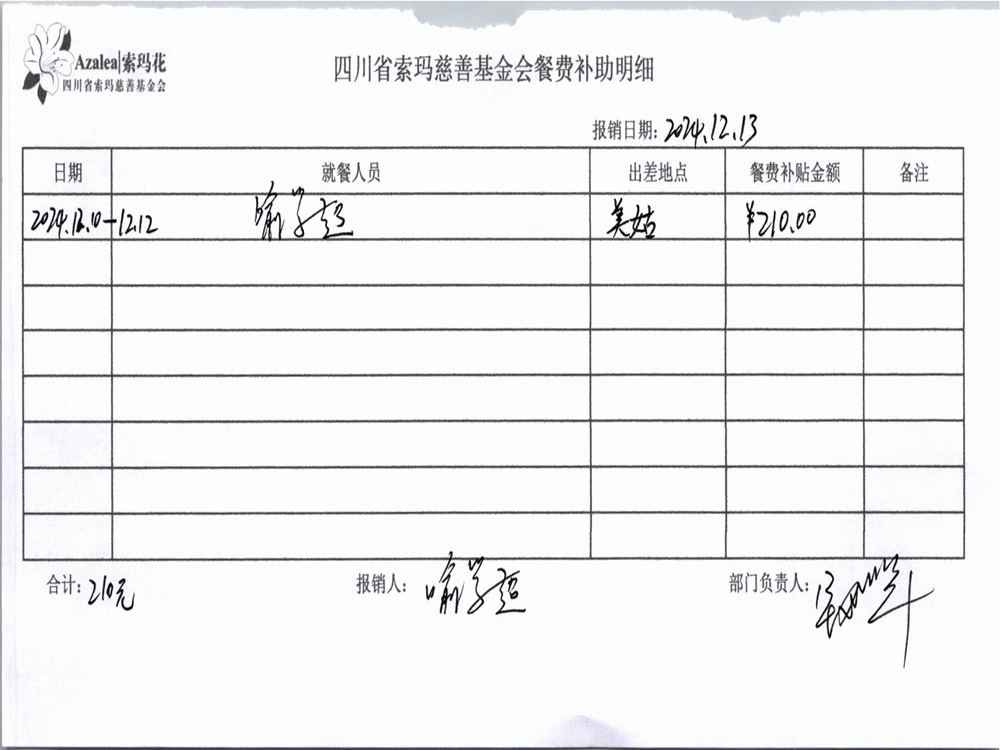 Azalea|索玛花
四川省索玛慈善基金会
四川省索玛慈善基金会餐费补助明细
报销日期: 2024.12.13
日期 就餐人员 出差地点 餐费补贴金额 备注
2024.12.10-12.12 喻学超 美姑 ¥210.00
合计: 210元 报销人: 喻学超 部门负责人: